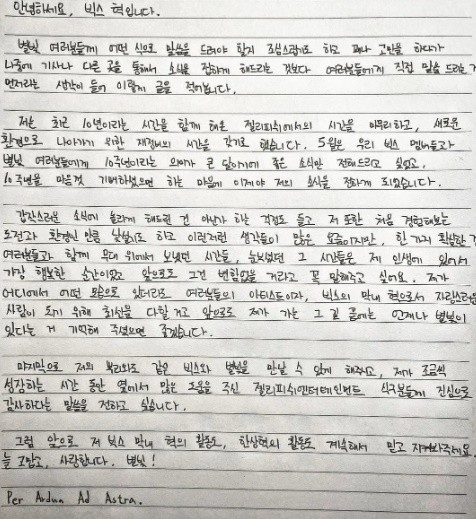 안녕하세요, 빅스 혁입니다.
별빛 여러분들께 어떤 식으로 말씀을 드려야 할지 조심스럽기도 하고 꽤나 고민을 하다가
나중에 기사나 다른 곳을 통해서 소식을 접하게 해드리는 것보다 여러분들에게 직접 말씀 드리는 게
먼저라는 생각이 들어 이렇게 글을 적어봅니다.
저는 최근 10년이라는 시간을 함께 해온 젤리피쉬에서의 시간을 마무리하고, 새로운
환경으로 나아가기 위한 재정비의 시간을 갖기로 했습니다. 5월은 우리 빅스 멤버들과
별빛 여러분들에게 10주년이라는 의미가 큰 달이기에 좋은 소식만 전해드리고 싶었고,
10주년을 마음껏 기뻐하셨으면 하는 마음에 이제야 저의 소식을 전하게 되었습니다.
갑작스러운 소식에 놀라게 해드린 건 아닌가 하는 걱정도 들고 저 또한 처음 경험해보는
도전과 환경인 만큼 낯설기도 하고 이런저런 생각들이 많은 요즘이지만, 한 가지 확실한 건
여러분들과 함께 무대 위에서 보냈던 시간들, 눈부셨던 그 시간들은 제 인생에 있어서
가장 행복한 순간이었고 앞으로도 그건 변함없을 거라고 꼭 말해주고 싶어요. 제가
어디에서 어떤 모습으로 있더라도 여러분들의 아티스트이자, 빅스의 막내 혁으로서 자랑스러운
사람이 되기 위해 최선을 다할 거고 앞으로도 제가 가는 그 길 끝에는 언제나 별빛이
있다는 걸 기억해 주셨으면 좋겠습니다.
마지막으로 저의 뿌리와도 같은 빅스와 별빛을 만날 수 있게 해주고, 제가 조금씩
성장하는 시간 동안 옆에서 많은 도움을 주신 젤리피쉬엔터테인먼트 식구분들께 진심으로
감사하다는 말씀을 전하고 싶습니다.
그럼 앞으로 저 빅스 막내 혁의 활동도, 한상혁의 활동도 계속해서 믿고 지켜봐주세요
늘 고맙고, 사랑합니다. 별빛!
Per Ardua Ad Astra.